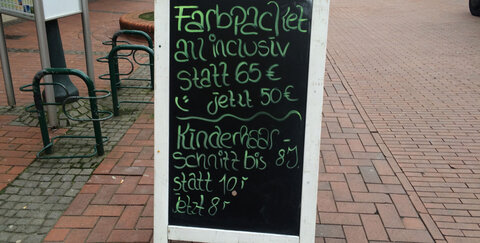 Farbpacket
all inclusiv
statt 65 €
jetzt 50 €
Kinderhaar-
schnitt bis 8J
statt 10,-
jetzt 8,-